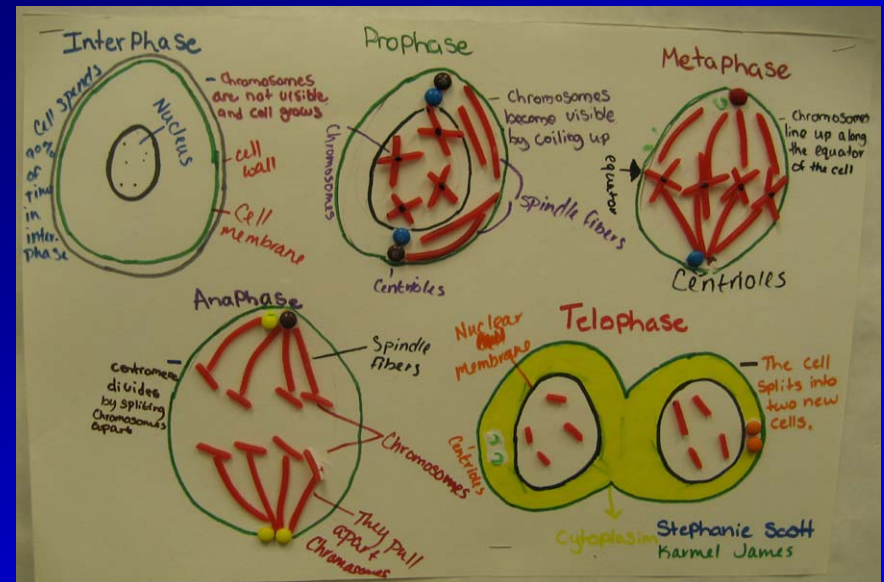 Interphase
Cell spends
90%
of
Time
in
inter-
phase
Nucleus
- Chromosomes
are not visible
and cell grows
cell
wall
Cell
membrane
Prophase
Chromosomes
- Chromosomes
become visible
by coiling up
Spindle fibers
Centrioles
Metaphase
equator
- Chromosomes
line up along
the equator
of the cell
Centrioles
Anaphase
- centromere
divides
by spliting
Chromosomes
apart
Spindle
fibers
Chromosomes
They pull
apart
Chromosomes
Telophase
Nuclear
membrane
Centrioles
- The cell
splits into
two new
cells.
Cytoplasim
Stephanie Scott
Karmel James